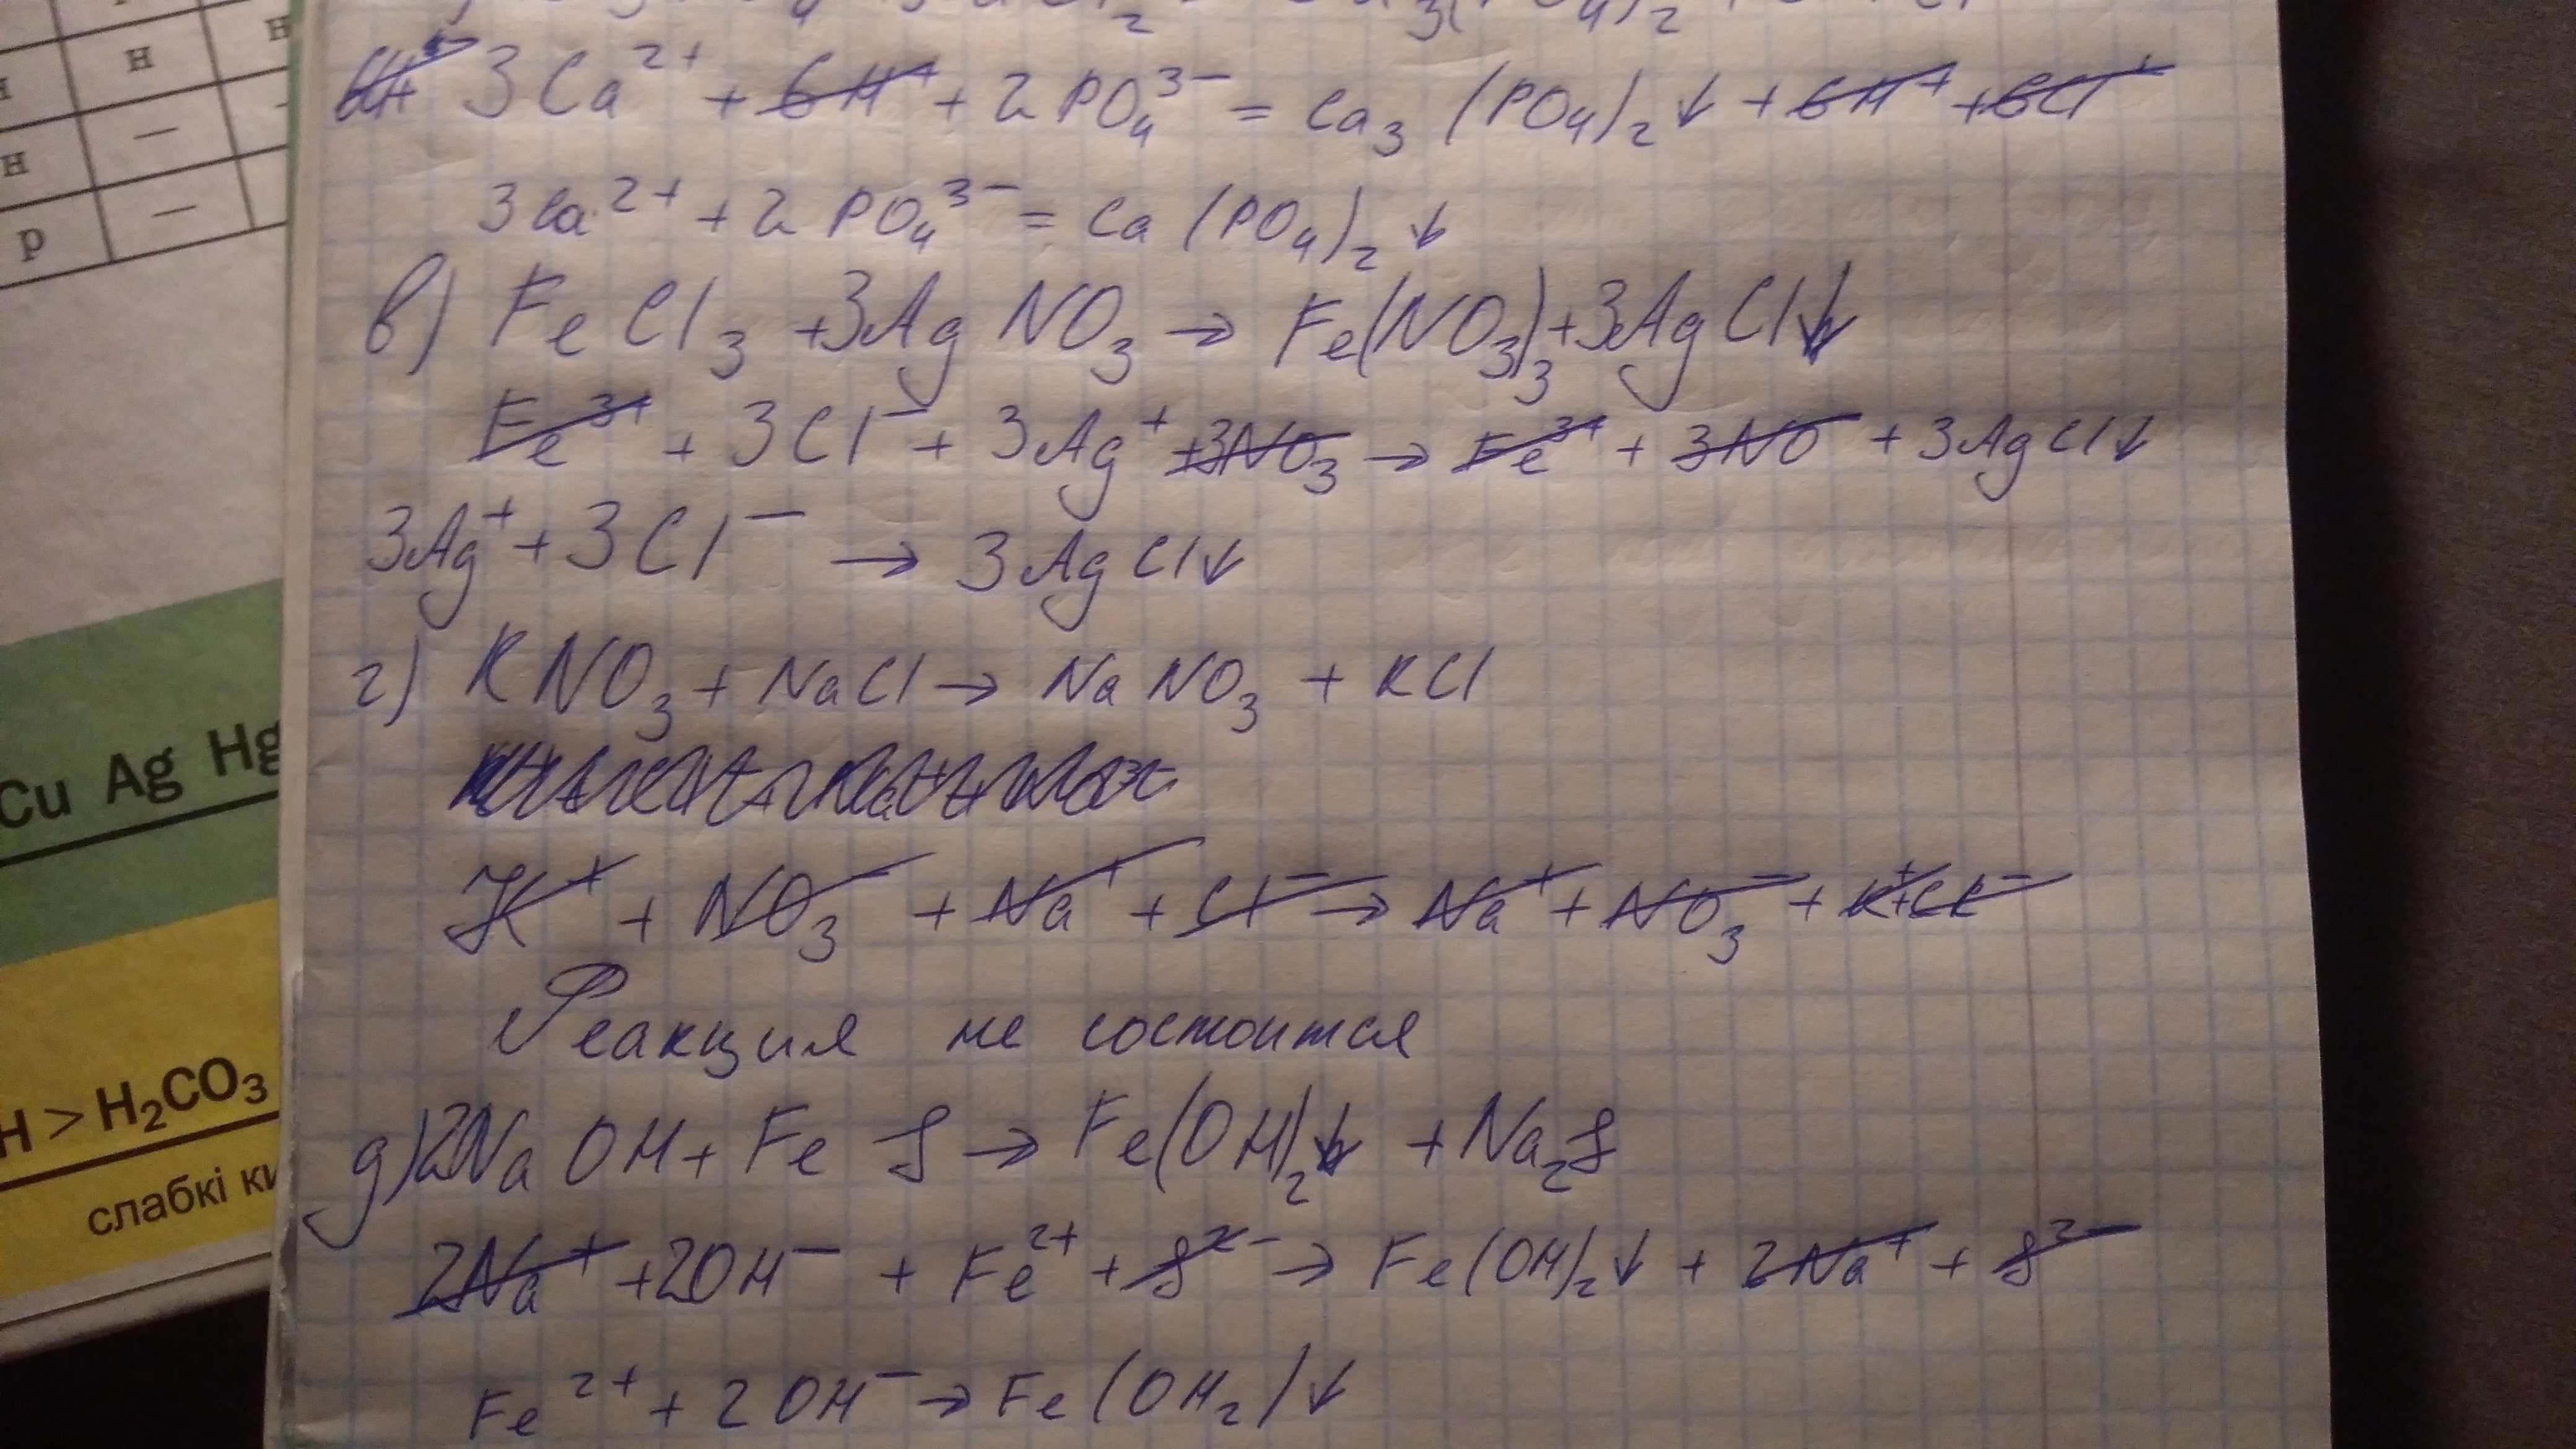 н
н
н
р
3Ca²⁺ + 6H⁺ + 2PO₄³⁻ = Ca₃(PO₄)₂↓ + 6H⁺ + 6Cl⁻
3Ca²⁺ + 2PO₄³⁻ = Ca(PO₄)₂↓
в) FeCl₃ + 3AgNO₃ → Fe(NO₃)₃ + 3AgCl↓
Fe³⁺ + 3Cl⁻ + 3Ag⁺ + 3NO₃ → Fe³⁺ + 3NO + 3AgCl↓
3Ag⁺ + 3Cl⁻ → 3AgCl↓
г) KNO₃ + NaCl → NaNO₃ + KCl
K⁺ + NO₃⁻ + Na⁺ + Cl⁻ → Na⁺ + NO₃⁻ + K⁺ + Cl⁻
Реакция не состоится
д) 2NaOH + FeS → Fe(OH)₂↓ + Na₂S
2Na⁺ + 2OH⁻ + Fe²⁺ + S²⁻ → Fe(OH)₂↓ + 2Na⁺ + S²⁻
Fe²⁺ + 2OH⁻ → Fe(OH₂)↓
Cu Ag Hg
H > H₂CO₃
слабкі ки